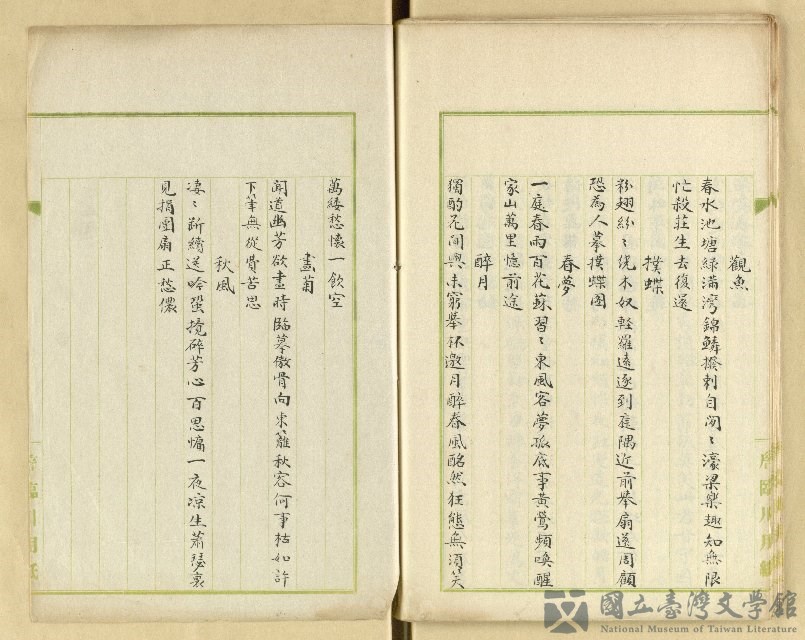 觀魚
春水池塘綠滿灣錦鱗撥刺自閑〻濠梁樂趣知無限
忙殺莊生去復還
撲蝶
粉翅紛〻繞木奴輕羅遠逐到庭隅近前舉扇遂周顧
恐為人摹撲蝶圖
春夢
一庭春雨百花蘇習〻東風客夢孤底事黃鶯頻喚醒
家山萬里憶前途
醉月
獨酌花間興未窮舉杯邀月醉春風酩然狂態無須笑
萬縷愁懷一飲空
畫菊
聞道幽芳欲畫時臨摹傲骨向東籬秋容何事枯如許
下筆無從費苦思
秋風
淒〻斷續送吟蛩攪碎芳心百思慵一夜凉生蕭瑟裏
見捐團扇正愁儂
唐臨川用紙
國立臺灣文學館
National Museum of Taiwan Literature